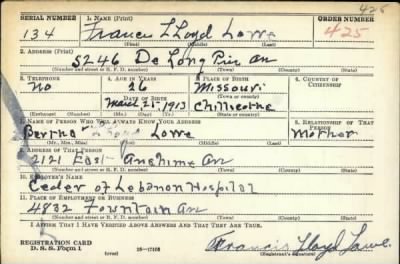 426
SERIAL NUMBER 1. NAME (Print) ORDER NUMBER
134 Francis Lloyd Lowe 425
2. ADDRESS (Print)
5246 De Long Pre av
(Number and street or R. F. D. number) (Town) (County) (State)
3. TELEPHONE 4. AGE IN YEARS 5. PLACE OF BIRTH 6. COUNTRY OF CITIZENSHIP
No 26 Missouri
DATE OF BIRTH (Town or county)
March 21-1913 Chillicothe
(Exchange) (Number) (Mo.) (Day) (Yr.) (State or country)
7. NAME OF PERSON WHO WILL ALWAYS KNOW YOUR ADDRESS 8. RELATIONSHIP OF THAT PERSON
Bertha Lowe Mother
(Mr., Mrs., Miss) (First) (Middle) (Last)
9. ADDRESS OF THAT PERSON
2121 East Anahime av
(Number and street or R. F. D. number) (Town) (County) (State)
10. EMPLOYER'S NAME
Ceder of Lebanon Hospital
11. PLACE OF EMPLOYMENT OR BUSINESS
4832 Fountain av
(Number and street or R. F. D. number) (Town) (County) (State)
I AFFIRM THAT I HAVE VERIFIED ABOVE ANSWERS AND THAT THEY ARE TRUE.
REGISTRATION CARD
D. S. S. Form 1 (over) 16-17105 Francis Lloyd Lowe
(Registrant's signature)